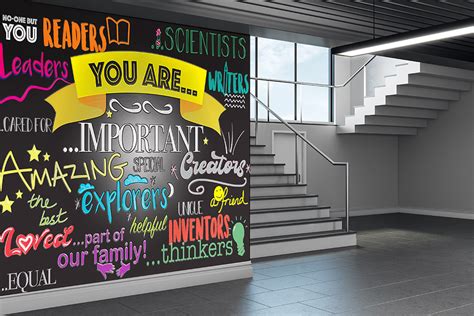 NO-ONE BUT
YOU
READERS
SCIENTISTS
Leaders
YOU ARE...
WRITERS
CARED FOR
...IMPORTANT
AMAZING
SPECIAL
Creators
explorers
a friend
the best
UNIQUE
helpful
Loved
...part of
our family!
INVENTORS
thinkers
...EQUAL